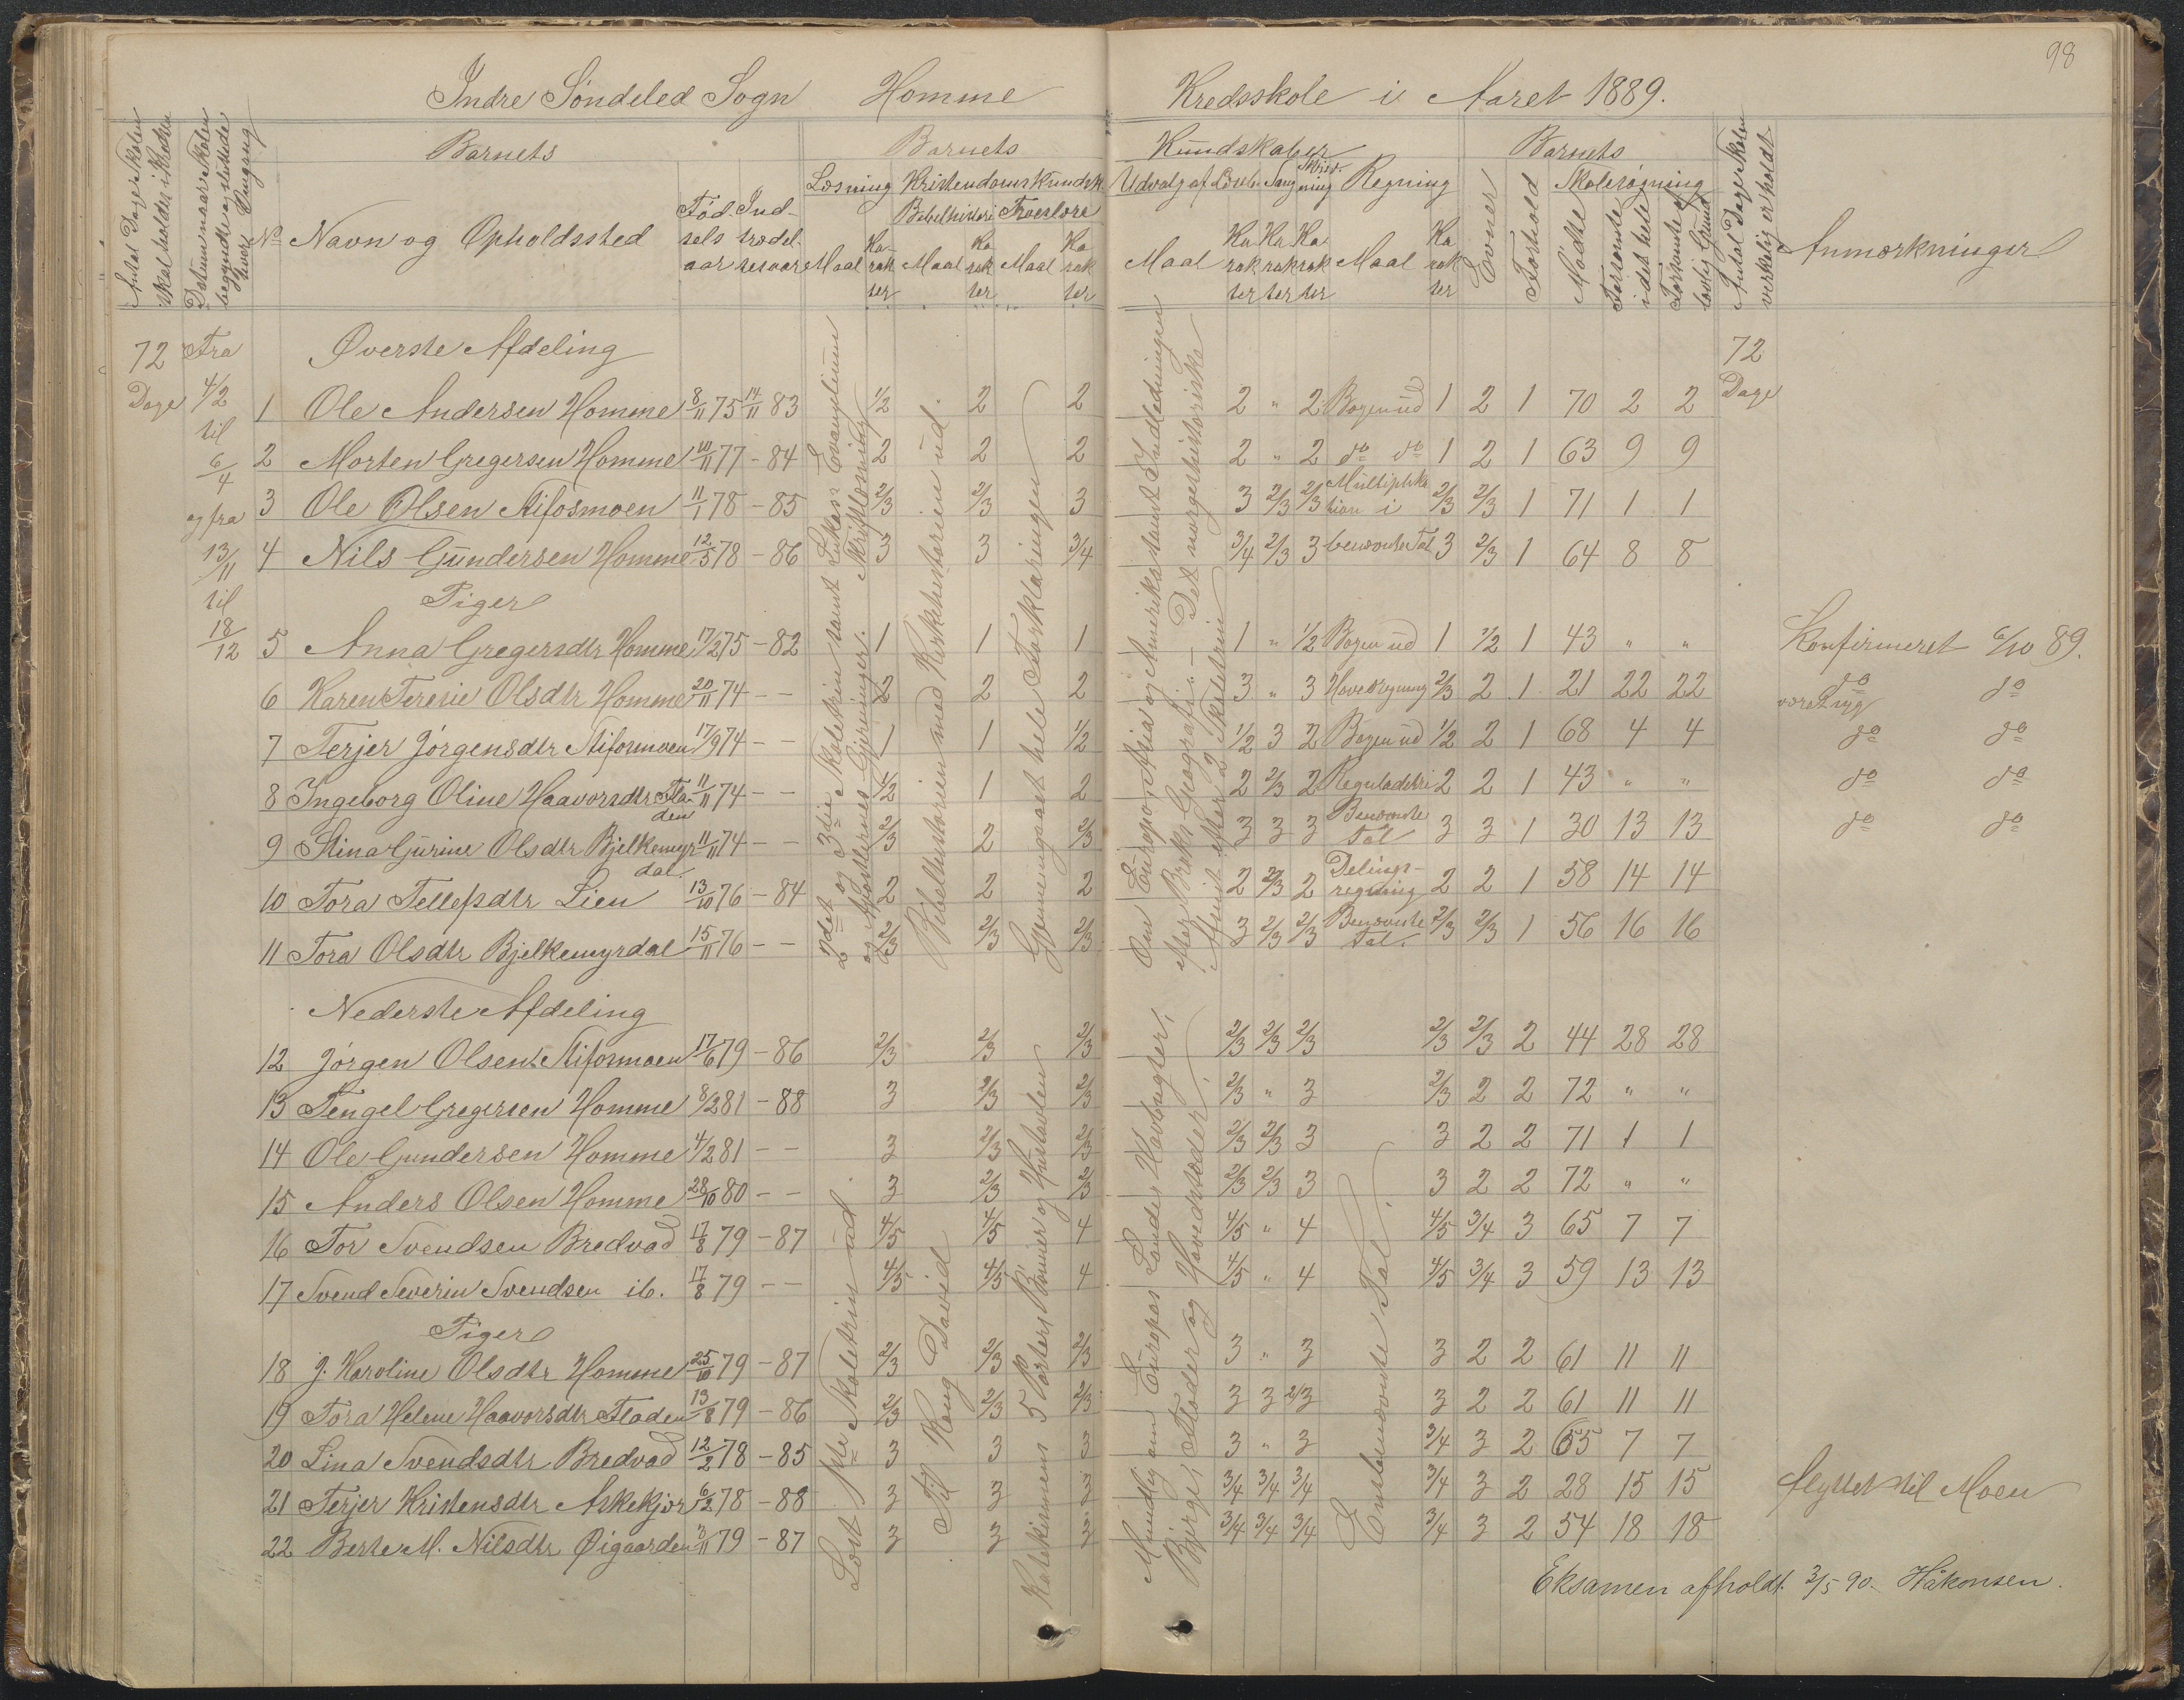 98
Indre Söndeled Sogn Homme Kredsskole i Aaret 1889.
Antal Dage Skolen skal holdes i Kredsen
Datum naar Skolen begyndte og sluttede hver Omgang
Barnets
No Navn og Opholdssted
Födselsaar
Indtrædelsesaar
Barnets Kundskaber
Læsning
Maal Karakter
Kristendomskundsk.
Bibelhistori Troeslære
Maal Karakter Maal Karakter
Udvalg af Læseb. Sang Skrivning Regning
Maal Karakter Karakter Karakter Maal Karakter
Barnets
Evner
Forhold
Skolesögning
Mödte
Forsömte i det hele
Forsömte af lovlig Grund
Antal Dage Skolen virkelig er holdt
Anmærkninger
72 Dage
Fra 4/2 til 6/4 og fra 13/11 til 18/12
72 Dage
Øverste Afdeling
1 Ole Andersen Homme 8/11 75 14/11 83 1/2 2 2 2 " 2 Bogen ud 1 2 1 70 2 2
2 Morten Gregersen Homme 10/11 77 - 84 2 2 2 2 " 2 do do 1 2 1 63 9 9
3 Ole Olsen Stifosmoen 11/1 78 - 85 2/3 2/3 3 3 2/3 2/3 Multiplikation i 2/3 2/3 1 71 1 1
4 Nils Gundersen Homme 12/5 78 - 86 3 3 3/4 3/4 2/3 3 benævnte Tal 3 2/3 1 64 8 8
Piger
5 Anna Gregersdtr Homme 17/2 75 - 82 1 1 1 1 " 1/2 Bogen ud 1 1/2 1 43 " " Konfirmeret 6/10 89.
6 Karen Teresie Olsdtr Homme 20/11 74 - - 2 2 2 3 " 3 Hovedregning 2/3 2 1 21 22 22 været syg do do
7 Terjer Jörgensdtr Stifosmoen 17/9 74 - - 1 1 1/2 1/2 3 2 Bogen ud 1/2 2 1 68 4 4 do do
8 Ingeborg Oline Haavorsdtr Fladen 11/11 74 - - 1/2 1 2 2 2/3 2 Reguladetri 2 2 1 43 " " do do
9 Stina Gurine Olsdtr Bjelkemyrdal 11/11 74 - - 2/3 2 2/3 3 3 3 Benævnte Tal 3 3 1 30 13 13 do do
10 Tora Tellefsdtr Lien 13/10 76 - 84 2 2 2 2 2/3 2 Delingsregning 2 2 1 58 14 14
11 Tora Olsdtr Bjelkemyrdal 15/11 76 - - 2/3 2/3 2/3 3 2/3 2/3 Benævnte Tal. 2/3 2/3 1 56 16 16
2det og 3die Skoletrin samt Lukas Evangelium og Apostlernes Gjerninger. Skriftlæsning
Bibelhistorien med Kirkehistorien ud.
Gjennemgaaet hele Forklaringen
Om Europa, Asia og Amerika samt Indledningen efter Broks Geografi. - Det norgeshistoriske Afsnit efter 2 Skoletrin
Nederste Afdeling
12 Jörgen Olsen Stifosmoen 17/6 79 - 86 2/3 2/3 2/3 2/3 2/3 2/3 2/3 2/3 2 44 28 28
13 Tengel Gregersen Homme 8/2 81 - 88 3 2/3 2/3 2/3 " 3 2/3 2 2 72 " "
14 Ole Gundersen Homme 4/2 81 - - 3 2/3 2/3 2/3 2/3 3 3 2 2 71 1 1
15 Anders Olsen Homme 28/10 80 - - 3 2/3 2/3 2/3 2/3 3 3 2 2 72 " "
16 Tor Svendsen Bredvad 17/8 79 - 87 4/5 4/5 4 4/5 " 4 4/5 3/4 3 65 7 7
17 Svend Severin Svendsen ib. 17/8 79 - - 4/5 4/5 4 4/5 " 4 4/5 3/4 3 59 13 13
Piger
18 J. Karoline Olsdtr Homme 25/10 79 - 87 2/3 2/3 2/3 3 " 3 3 2 2 61 11 11
19 Tora Helene Haavorsdtr Fladen 13/8 79 - 86 2/3 2/3 2/3 3 3 2/3 3 2 2 61 11 11
20 Lina Svendsdtr Bredvad 12/2 78 - 85 3 3 3 3 " 3 3/4 3 2 65 7 7
21 Terjer Kristensdtr Askekjær 6/12 78 - 88 3 3 3 3/4 3/4 3/4 3/4 3 2 28 15 15 flyttet til Moen
22 Berte M. Nilsdtr Øigaarden 3/11 79 - 87 3 3 3 3/4 3/4 3/4 3/4 3 2 54 18 18
Læst 1ste Skoletrin ud
Til Kong David
Katekismens 5 Parter, Bönner og Hustavlen
Mundtlig om Europas Lande, Havbugter, Bjerge, Floder og Hovedstæder.
Enebenævnte Tal.
Eksamen afholdt 3/5 90. Håkonsen.